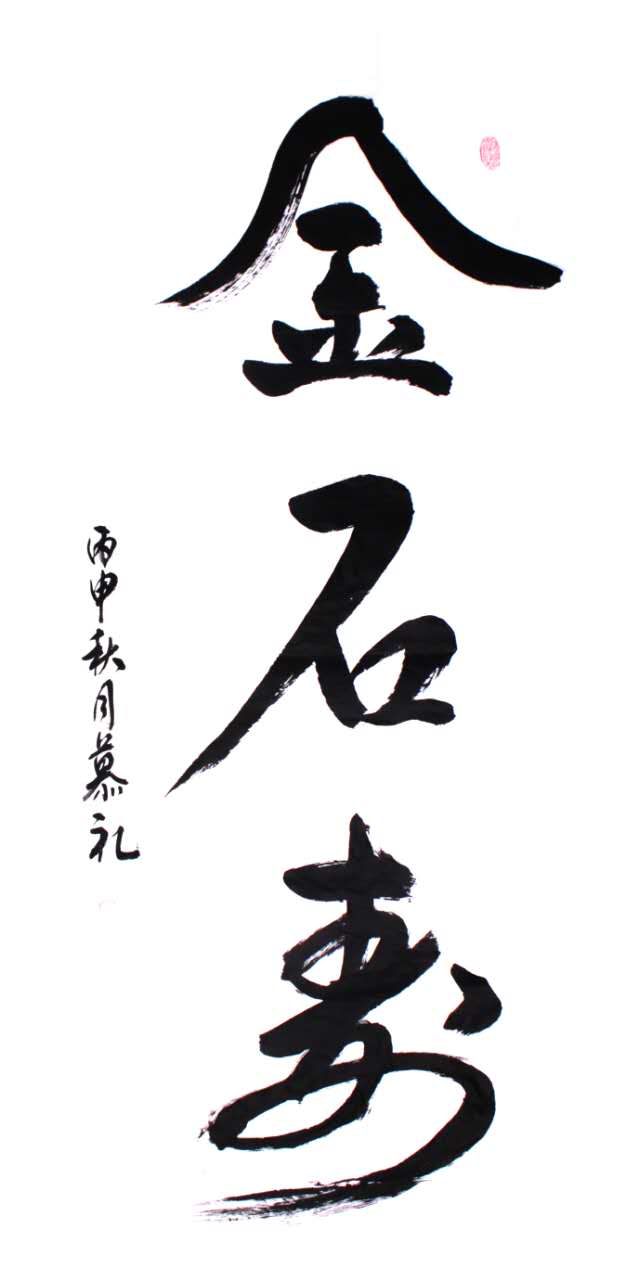 金石寿
丙申秋月慕礼